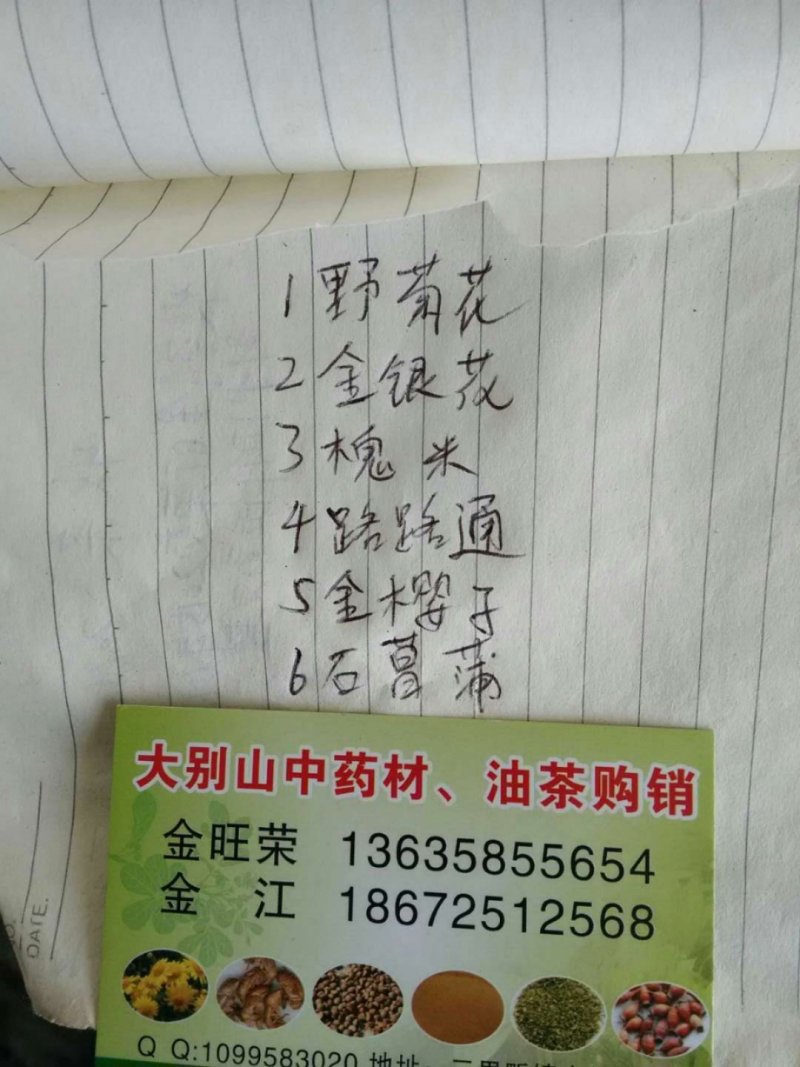 1 野菊花
2 金银花
3 槐米
4 路路通
5 金樱子
6 石菖蒲
大别山中药材、油茶购销
金旺荣 13635855654
金 江 18672512568
DATE.
Q Q:1099583020 地址